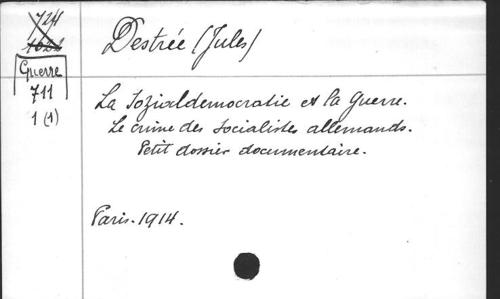 724
1022
Guerre
711
1 (1)
Destrée (Jules)
La Sozialdemocratie et la Guerre.
Le crime des Socialistes allemands.
Petit dossier documentaire.
Paris. 1914.